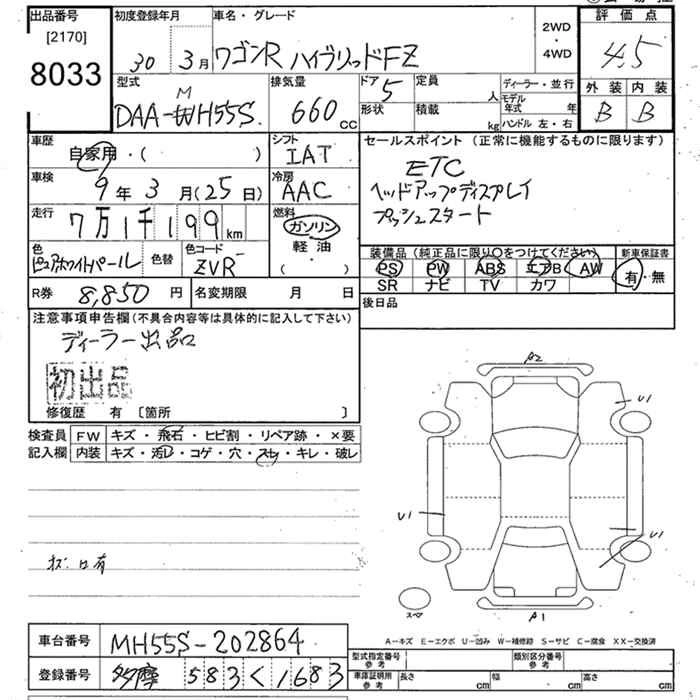 出品番号
[2170]
8033
初度登録年月
30 3月
車名・グレード
ワゴンR ハイブリッドFZ
2WD
・
4WD
評価点
4.5
外装 内装
B B
型式
M
DAA-WH55S.
排気量
660 cc
ドア 5
形状
定員 人
積載 kg
ディーラー・並行
モデル年式 年
ハンドル 左・右
車歴
自家用・( )
シフト
IAT
セールスポイント (正常に機能するものに限ります)
ETC
ヘッドアップディスプレイ
プッシュスタート
車検
9年 3月 (25日)
冷房
AAC
走行
7万1千199 km
燃料
ガソリン
軽油
( )
色
ピュアホワイトパール
色替
色コード
ZVR
装備品 (純正品に限り〇をつけてください)
PS PW ABS エアB AW
SR ナビ TV カワ
新車保証書
有・無
R券 8,850円
名変期限 月 日
後日品
注意事項申告欄 (不具合内容等は具体的に記入して下さい)
ディーラー出品
初出品
修復歴 有 [箇所 ]
検査員記入欄
FW キズ・飛石・ヒビ割・リペア跡・×要
内装 キズ・汚レ・コゲ・穴・スレ・キレ・破レ
A2
U1
U1
U1
スペア
A1
A-キズ E-エクボ U-凹み W-補修跡 S-サビ C-腐食 XX-交換済
車台番号 MH55S-202864
登録番号 多摩 583 く 1683
型式指定番号 参考
類別区分番号 参考
車庫証明用 参考
長さ cm 幅 cm 高さ cm